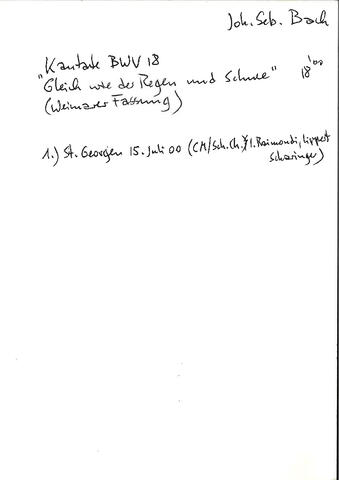 Joh. Seb. Bach
Kantate BWV 18
"Gleich wie der Regen und Schnee" 18'00
(Weimarer Fassung)
1.) St. Georgen 15. Juli 00 (CM/Sch.Ch./I. Raimondi, Lippert
Scharinger)